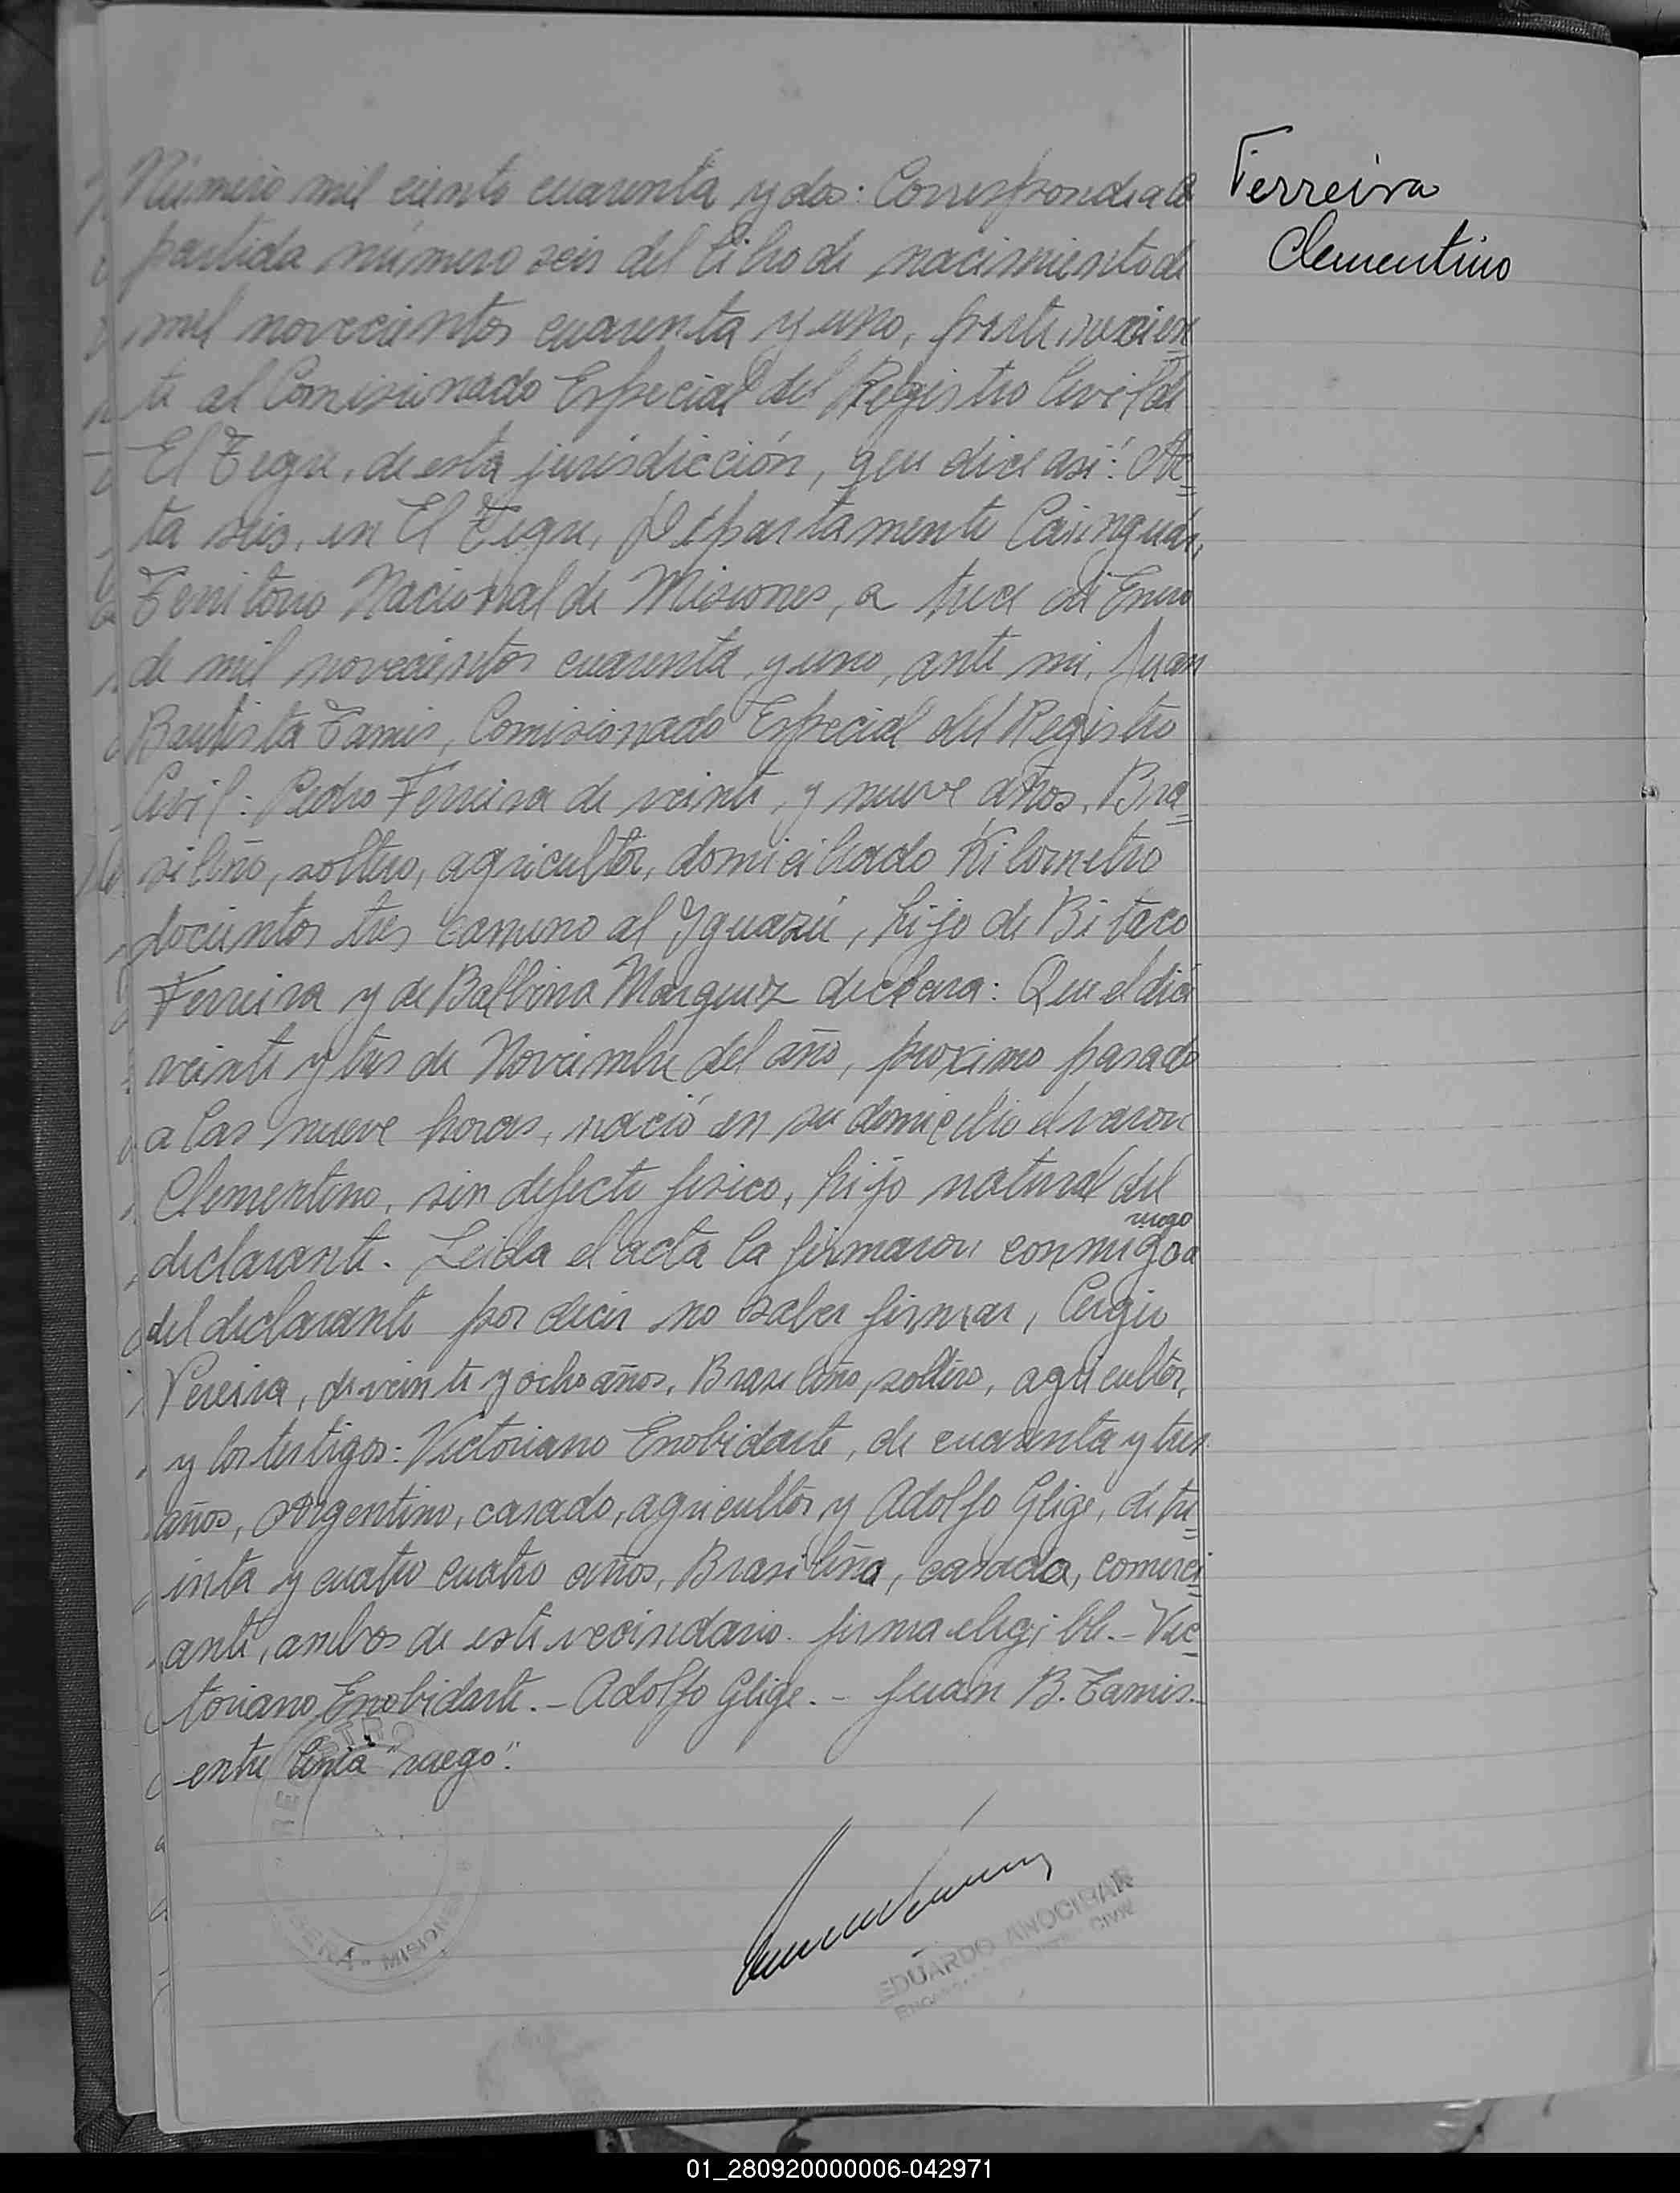 Ferreira
Clementino
Número mil ciento cuarenta y dos: Corresponde a la
partida número seis del libro de nacimiento de
mil novecientos cuarenta y uno, pertenecien
te al Comisionado Especial del Registro Civil de
El Tigre, de esta jurisdicción, que dice así: Ac=
ta seis, en El Tigre, Departamento Cainguás,
Territorio Nacional de Misiones, a trece de Enero
de mil novecientos cuarenta y uno, ante mi, Juan
Bautista Tamis, Comisionado Especial del Registro
Civil: Pedro Ferreira de veinte y nueve años, Bra=
sileño, soltero, agricultor, domiciliado Kilometro
docientos tres camino al Yguazú, hijo de Bitaco
Ferreira y de Balbina Marquez declara: Que el dia
veinte y tres de Noviembre del año, proximo pasado
a las nueve horas, nació en su domicilio el varon
Clementino, sin defecto fisico, hijo natural del
declarante. Leida el acta la firmaron conmigo a ruego
del declarante por decir no saber firmar, Cergio
Pereira, de veinte y ocho años, Brasileño, soltero, agricultor,
y los testigos: Victoriano Enobidarte, de cuarenta y tres
años, Argentino, casado, agricultor y Adolfo Glige, de tre=
inta y cuatro cuatro años, Brasileño, casado, comerci=
ante, ambos de este vecindario. firma elegible.- Vic=
toriano Enobidarte.- Adolfo Glige.- Juan B. Tamis.-
entre linea "ruego".
MISIONES
EDUARDO ANOCIBAR
CIVIL
01_280920000006-042971